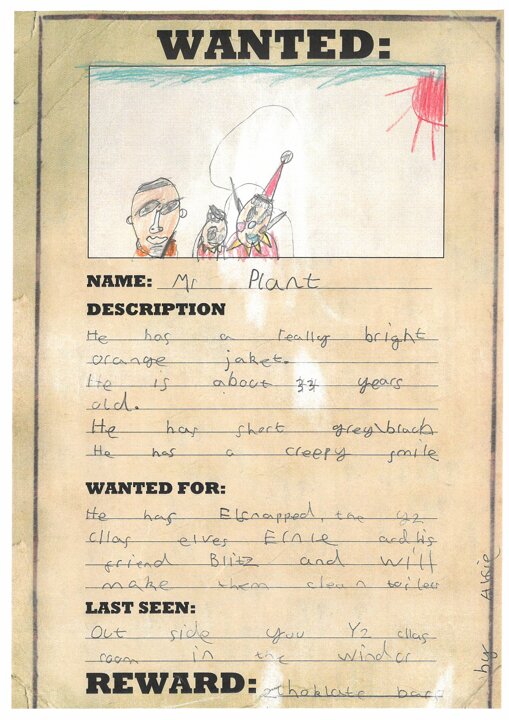 WANTED:
NAME: Mr Plant
DESCRIPTION
He has a really bright
orange jaket.
He is about 34 years
old.
He has short grey\black
He has a creepy smile
WANTED FOR:
He has Elsnapped, the Y2
cllas elves Ernie and his
friend Blitz and will
make them clean
LAST SEEN:
Out side you Y2 cllas
room in the window
REWARD: choklate
by Alfie